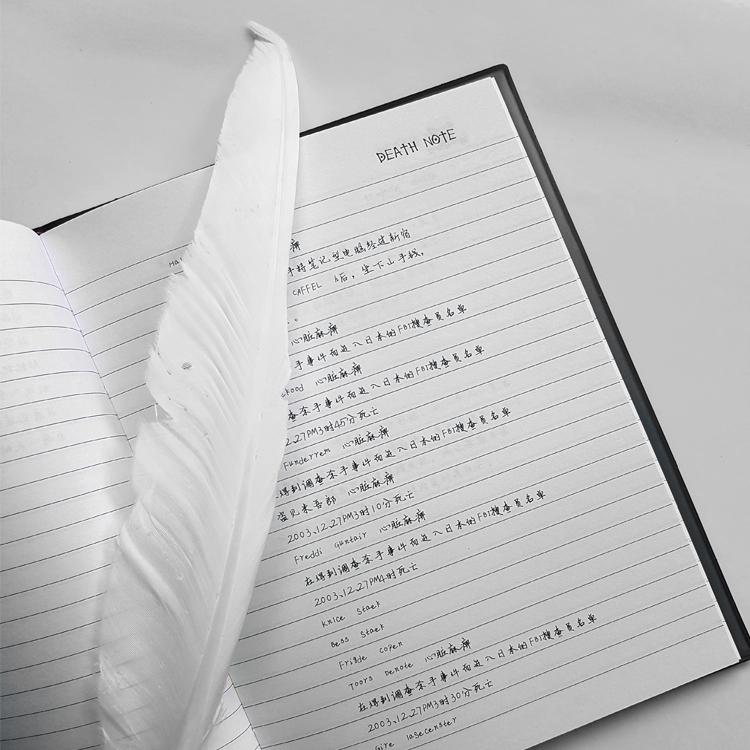 DEATH NOTE
Ha
痹
手持笔记型电脑经过新宿
CAFFEL 后，坐下山手线。
。
心脏麻痹
手事件而进入日本的FBI搜查员名单
kood 心脏麻痹
查杀手事件而进入日本的FBI搜查员名单
2.27PM3时45分死亡
Funderrem 心脏麻痹
得到调查杀手事件而进入日本的FBI搜查员名单
盗见木吾郎 心脏麻痹
2003.12.27PM3时10分死亡
Freddi Guntair 心脏麻痹
在得到调查杀手事件而进入日本的FBI搜查员名单
2003.12.27PM4时死亡
Knice Staek
Bess Staek
Frigde copen
Toors Denote 心脏麻痹
在得到调查杀手事件而进入日本的FBI搜查员名单
2003.12.27PM3时30分死亡
Gire lasecenster